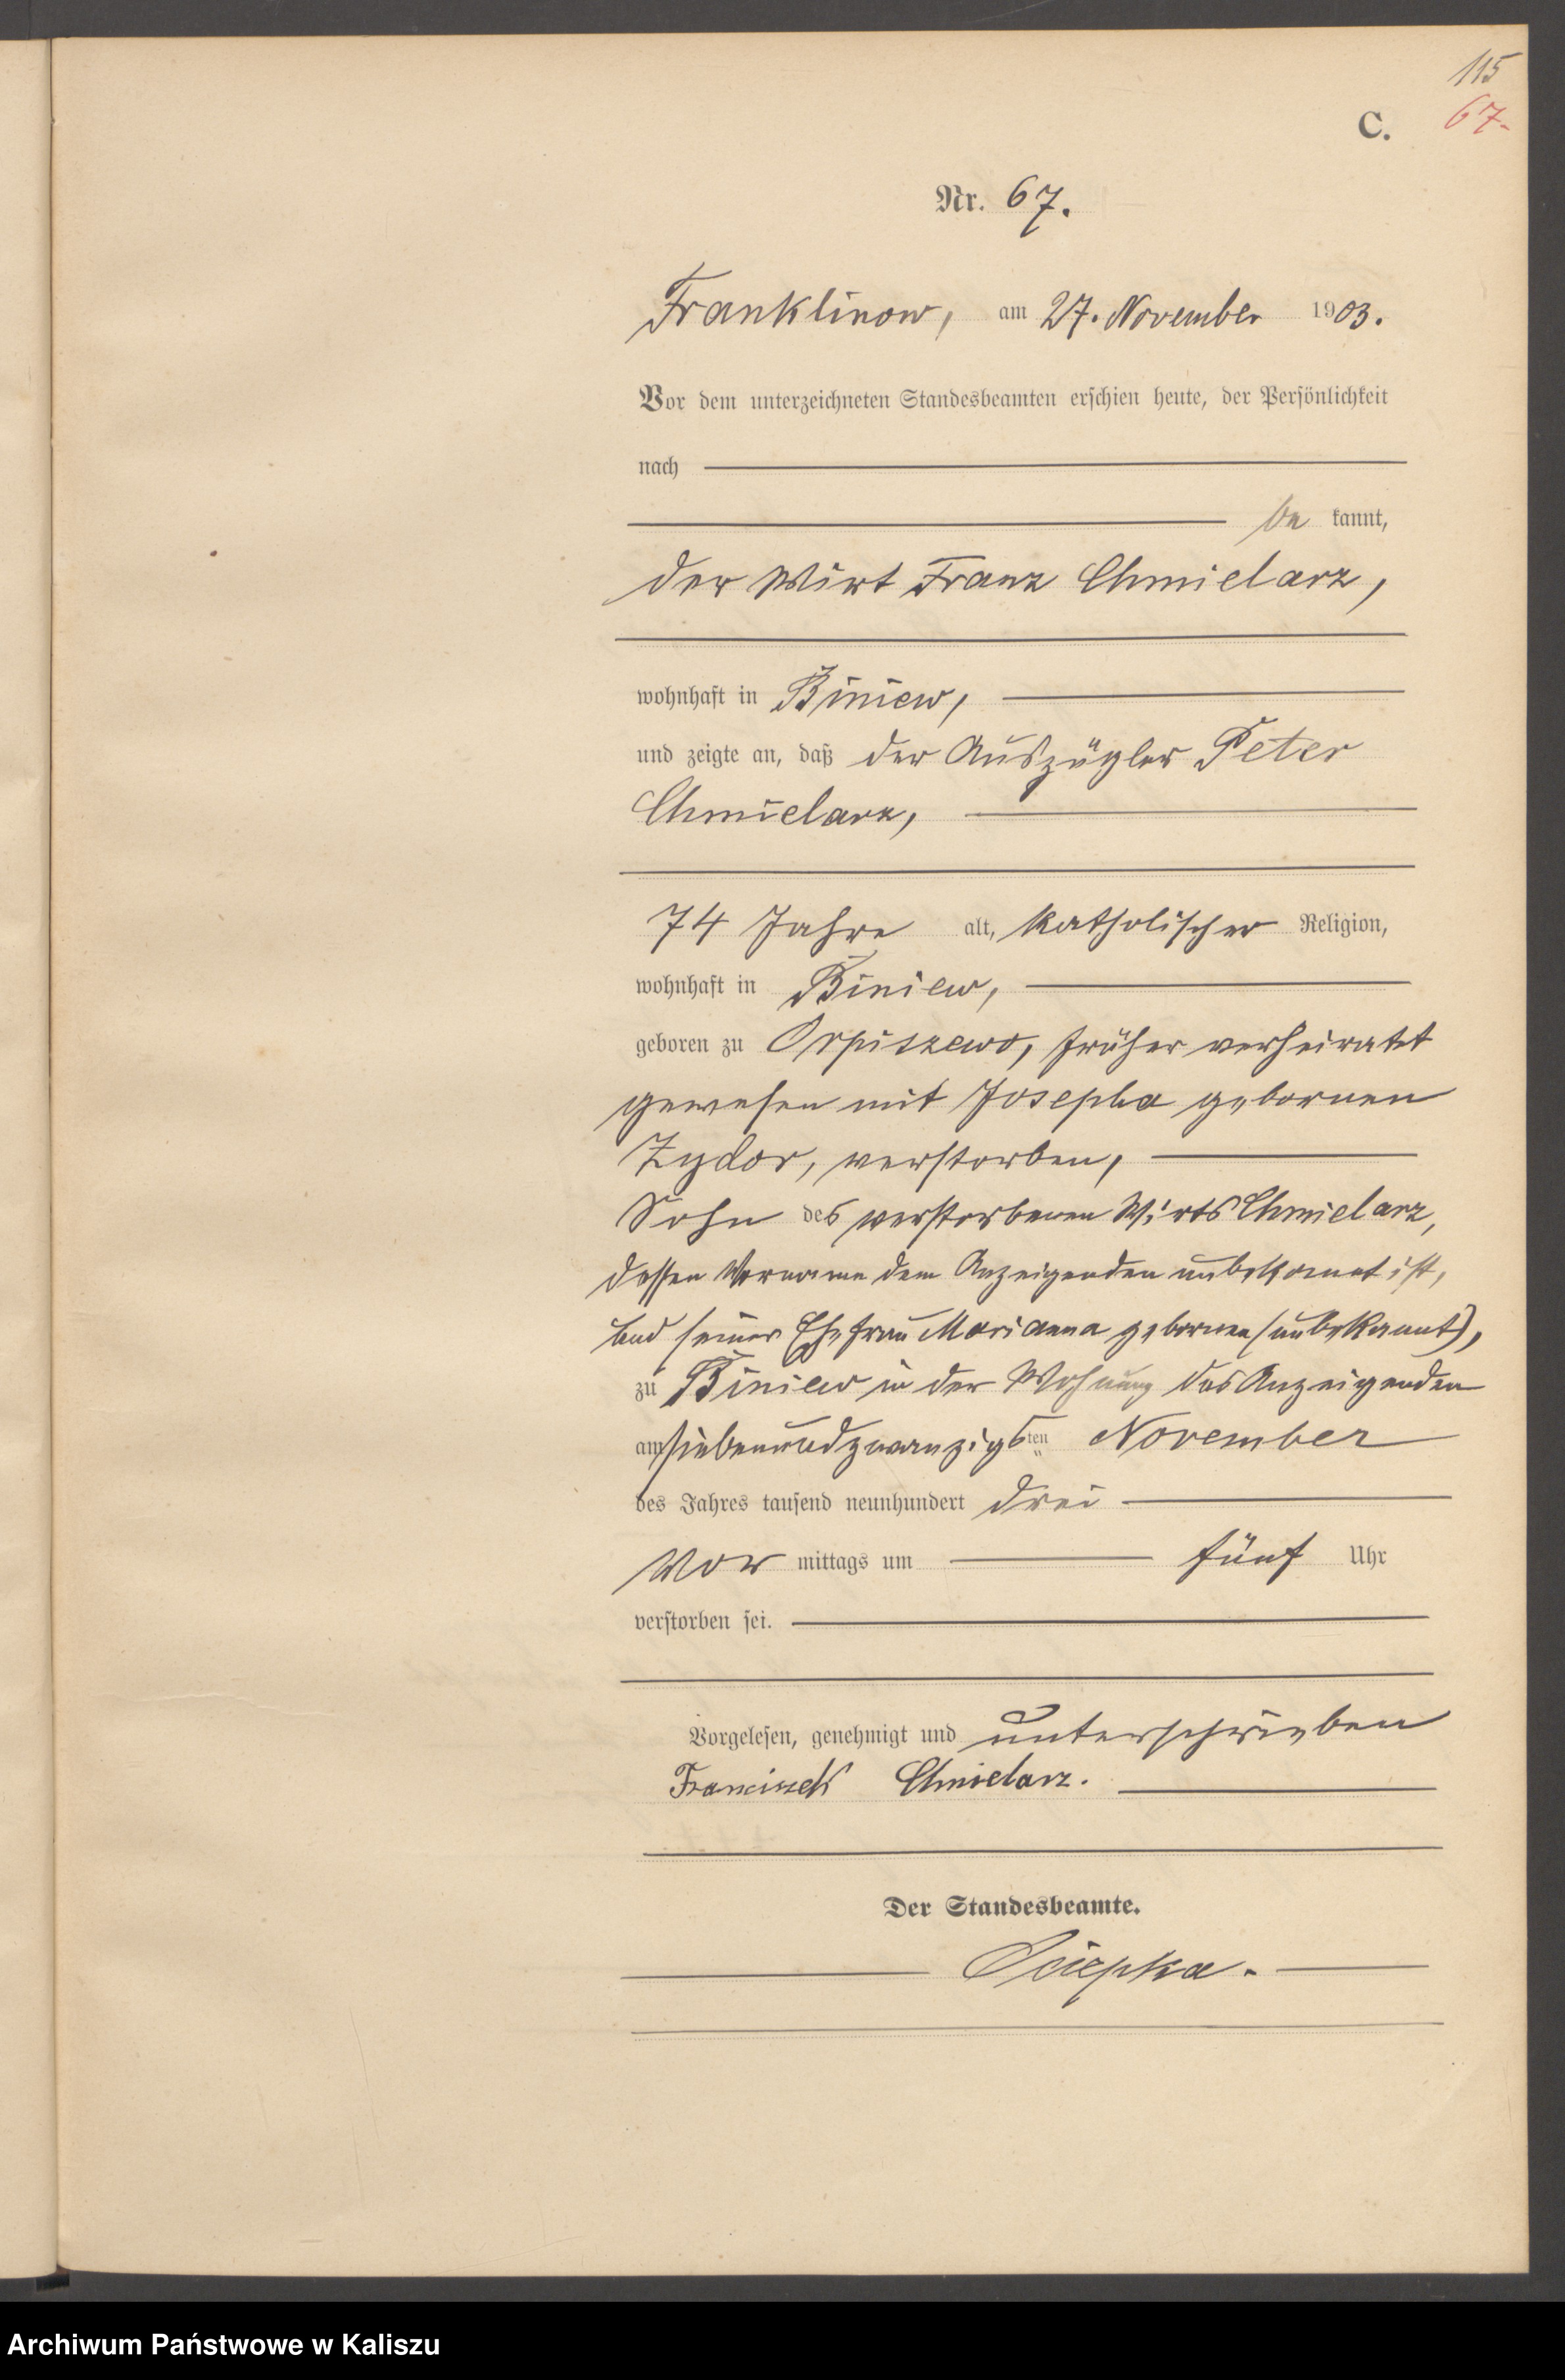 115
C. 67.
Nr. 67.
Franklinow, am 27. November 1903.
Vor dem unterzeichneten Standesbeamten erschien heute, der Persönlichkeit
nach
be kannt,
der Wirt Franz Chmielarz,
wohnhaft in Biniew,
und zeigte an, daß der Auszügler Peter
Chmielarz,
74 Jahre alt, katholischer Religion,
wohnhaft in Biniew,
geboren zu Orpiszewo, früher verheiratet
gewesen mit Josepha geborenen
Zydor, verstorben,
Sohn des verstorbenen Wirts Chmielarz,
dessen Vorname dem Anzeigenden unbekannt ist,
und seiner Ehefrau Marianna geborenen (unbekannt),
zu Biniew in der Wohnung des Anzeigenden
am siebenundzwanzigsten November
des Jahres tausend neunhundert drei
Vor mittags um fünf Uhr
verstorben sei.
Vorgelesen, genehmigt und unterschrieben
Franciszek Chmielarz.
Der Standesbeamte.
Sciepka.
Archiwum Państwowe w Kaliszu